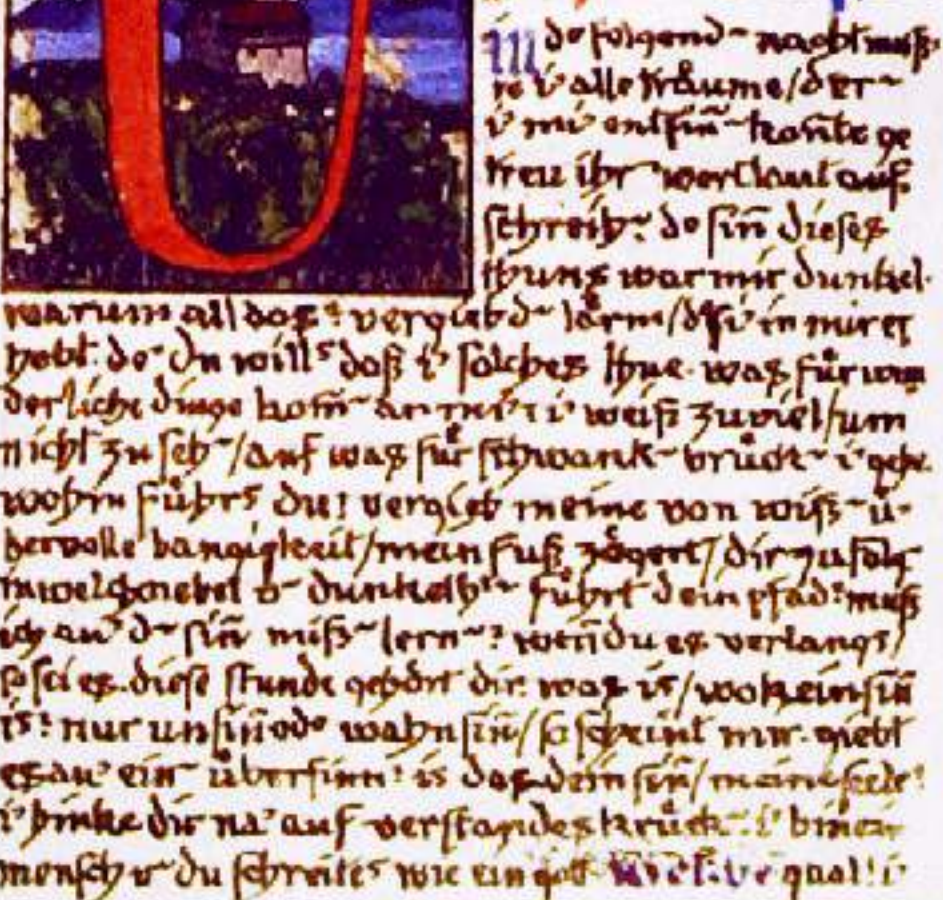 de folgend~ nacht muß
t i' alle träume/der~
i' mi' entsiñ~ konte ge
treu ihr~ wortlaut auf
schreib~. de siñ dieses
thuns war mir dunkel.
warum all das? vergieb d~ lärm/d' si' in mir er
hebt. do' du wills' daß i' solches thue. was für wun
derliche dinge kom~ an mi'? i' weiß zuviel/um
nicht zu seh~/auf was für schwank~ brück~ i' gehe.
wohin führs' du? vergieb meine von wiß~ ü-
bervolle bangigkeit/mein fuß zögert/dir zu folg
in welch nebel v~ dunkelh't~ führt dein pfad? muß
ich au' d~ siñ miß~ lern~? weñ du es verlangs'/
so sei es. diese stunde gehört dir. was is'/wo kein siñ
is'? nur unsiñ ode wahnsiñ/so scheint mir. giebt
es au' ein~ übersinn? is' das dein siñ/meine seele?
i' hinke dir na' auf verstandes krück~. i' bin ein
mensch v~ du schreites' wie ein gott. welche qual! i'